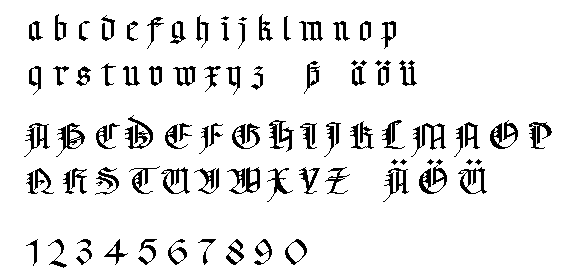 a b c d e f g h i j k l m n o p
q r s t u v w x y z ß ä ö ü
A B C D E F G H I J K L M N O P
Q R S T U V W X Y Z Ä Ö Ü
1 2 3 4 5 6 7 8 9 0